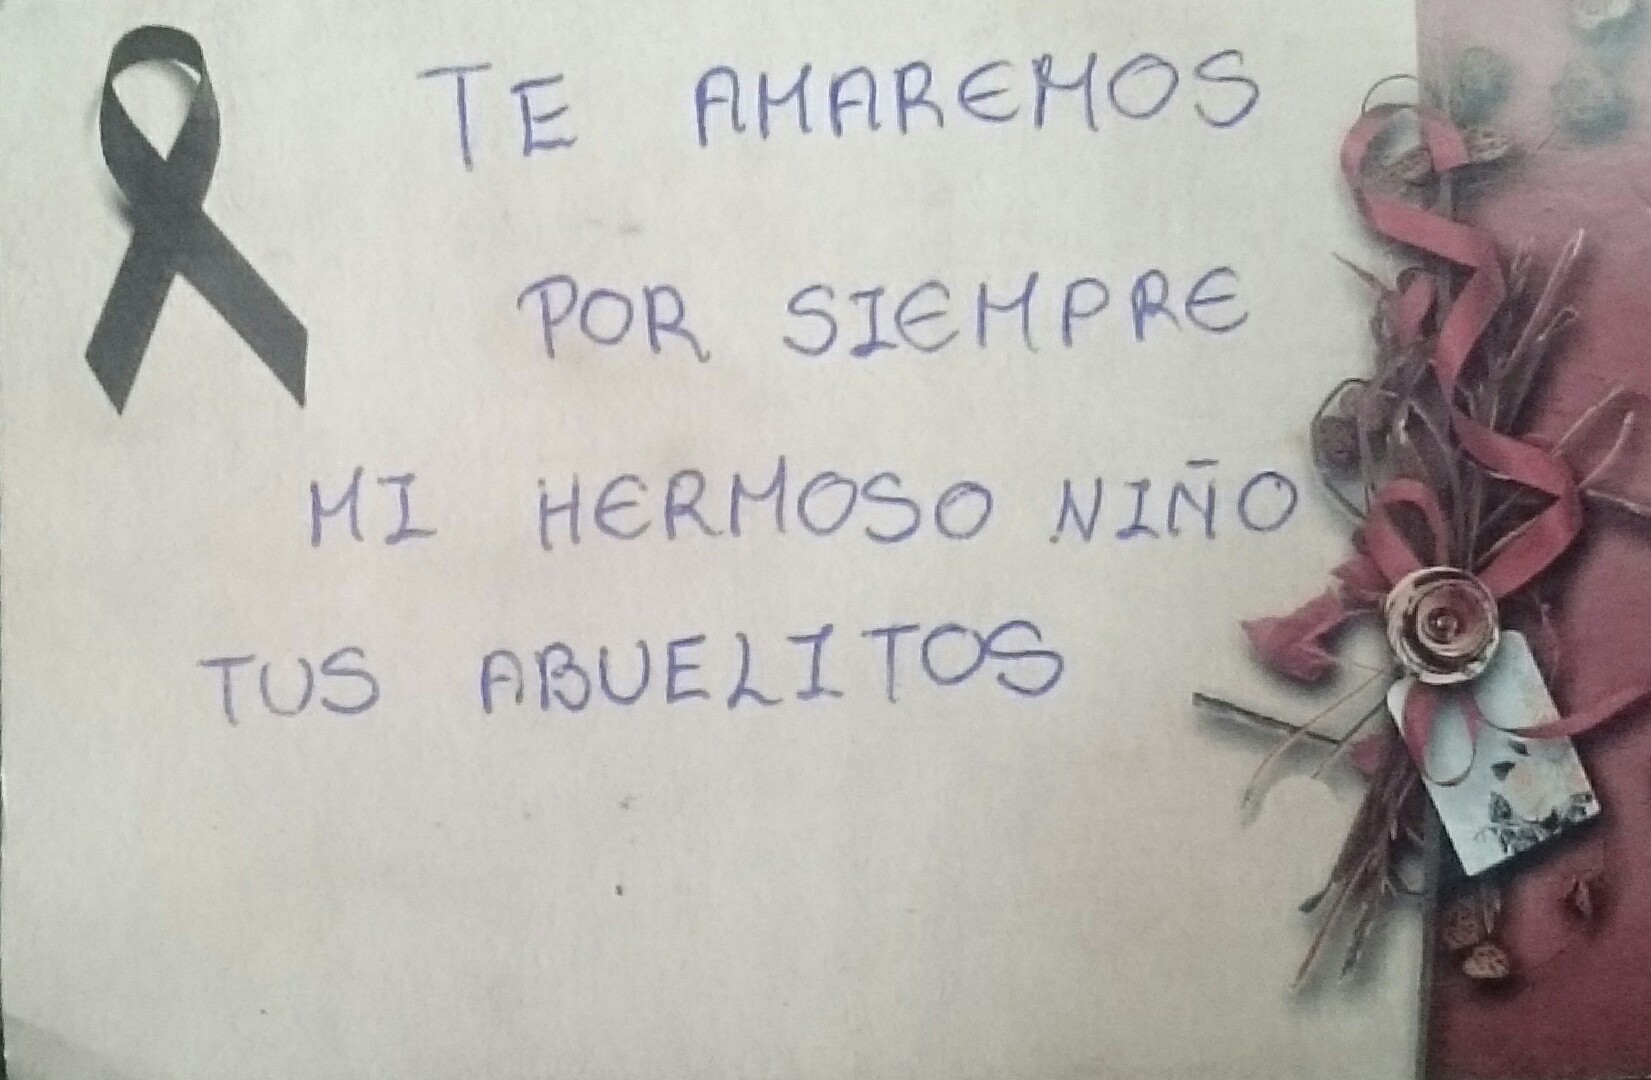 TE AMAREMOS
POR SIEMPRE
MI HERMOSO NIÑO
TUS ABUELITOS